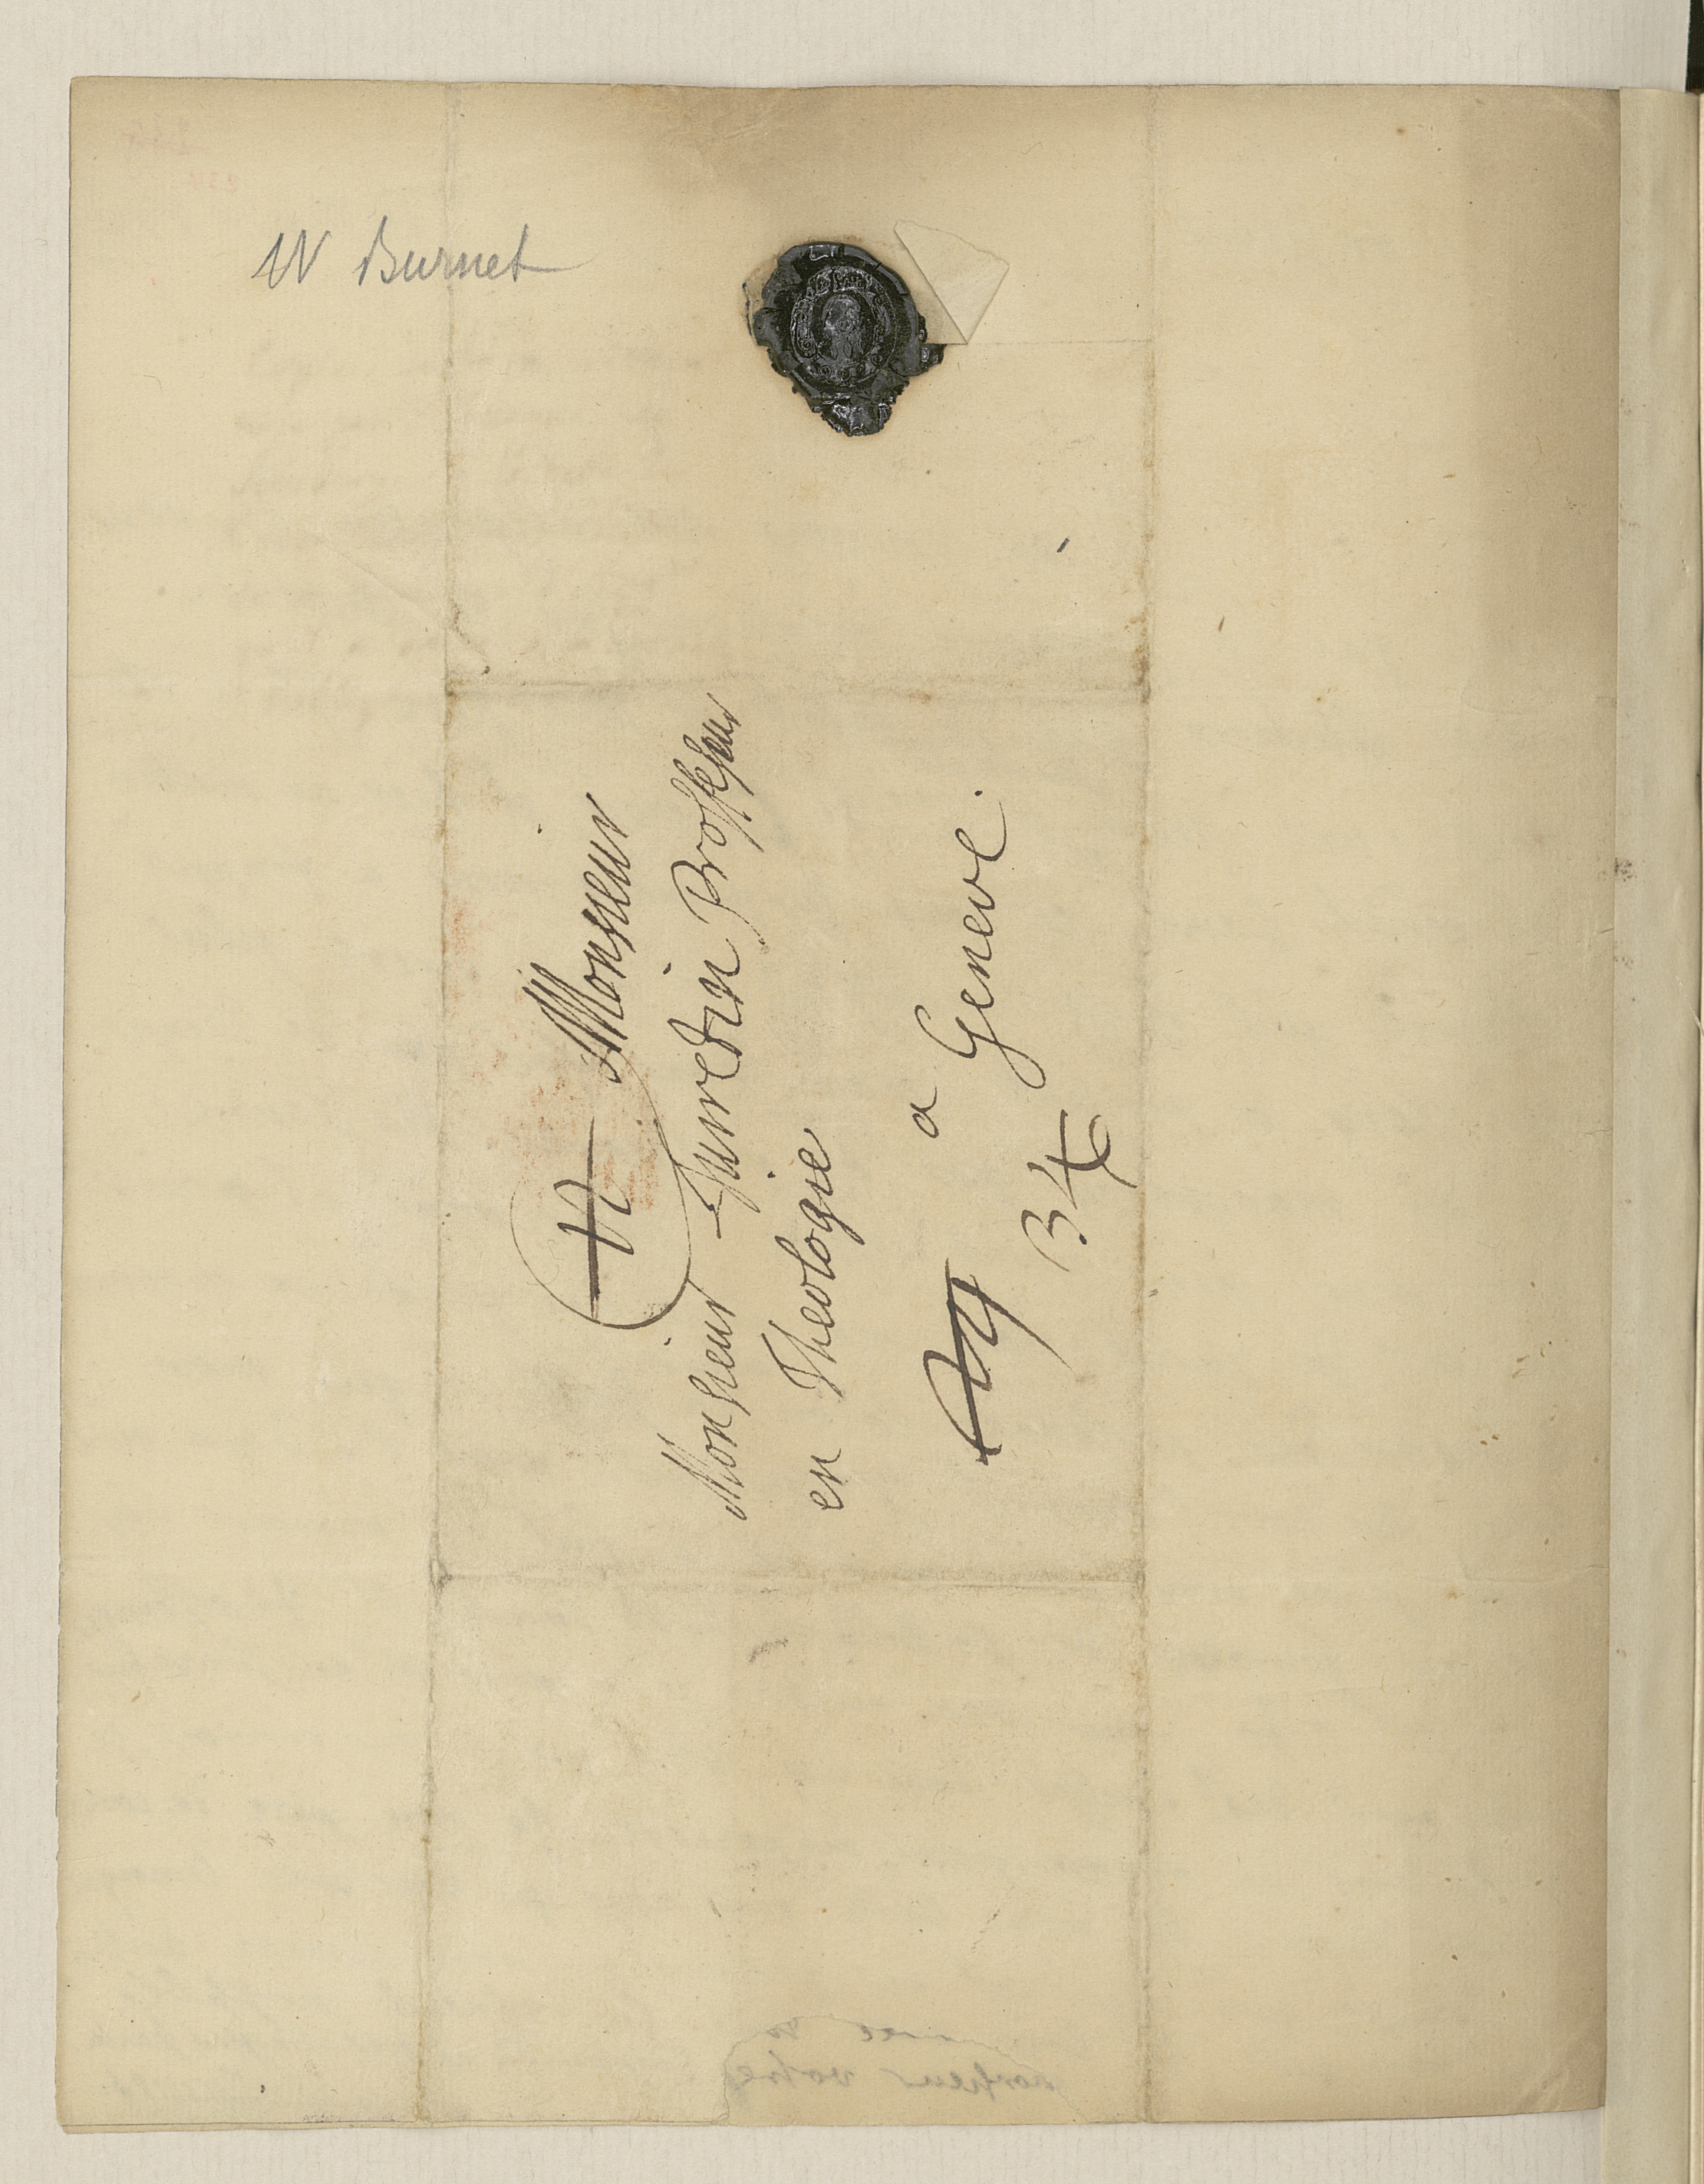 W Burnet
A Monsieur
Monsieur Turretin Professeur
en Theologie
a Geneve.
34